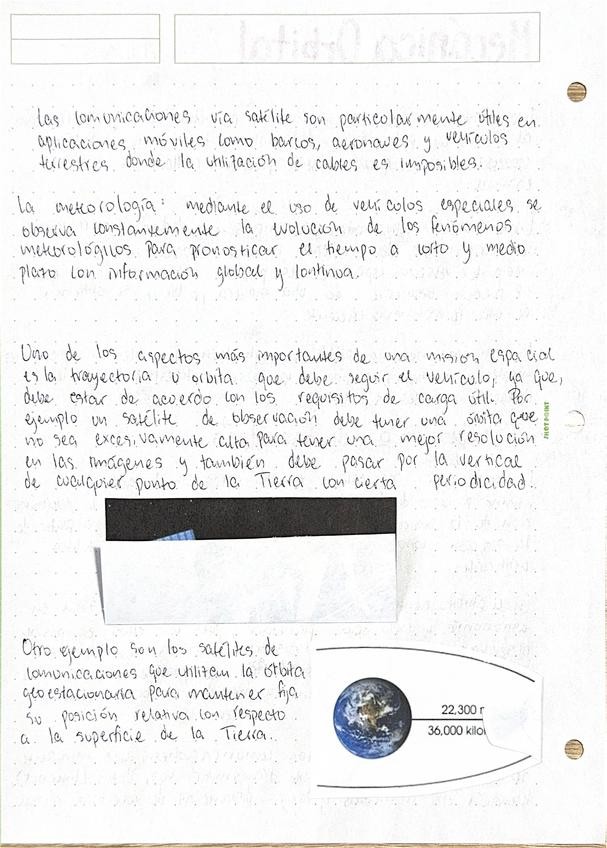 Las comunicaciones vía satélite son particularmente útiles en
aplicaciones móviles como barcos, aeronaves y vehículos
terrestres donde la utilización de cables es imposibles.
La meteorología: mediante el uso de vehículos especiales se
observa constantemente la evolución de los fenómenos
meteorológicos para pronosticar el tiempo a corto y medio
plazo con información global y continua.
Uno de los aspectos más importantes de una mision espacial
es la trayectoria u orbita que debe seguir el vehículo, ya que,
debe estar de acuerdo con los requisitos de carga útil. Por
ejemplo un satélite de observación debe tener una órbita que
no sea excesivamente alta para tener una mejor resolución
en las imágenes y también debe pasar por la vertical
de cualquier punto de la Tierra con cierta periodicidad.
Otro ejemplo son los satélites de
comunicaciones que utilizan la órbita
geoestacionaria para mantener fija
su posición relativa con respecto
a la superficie de la Tierra.
22,300
36,000